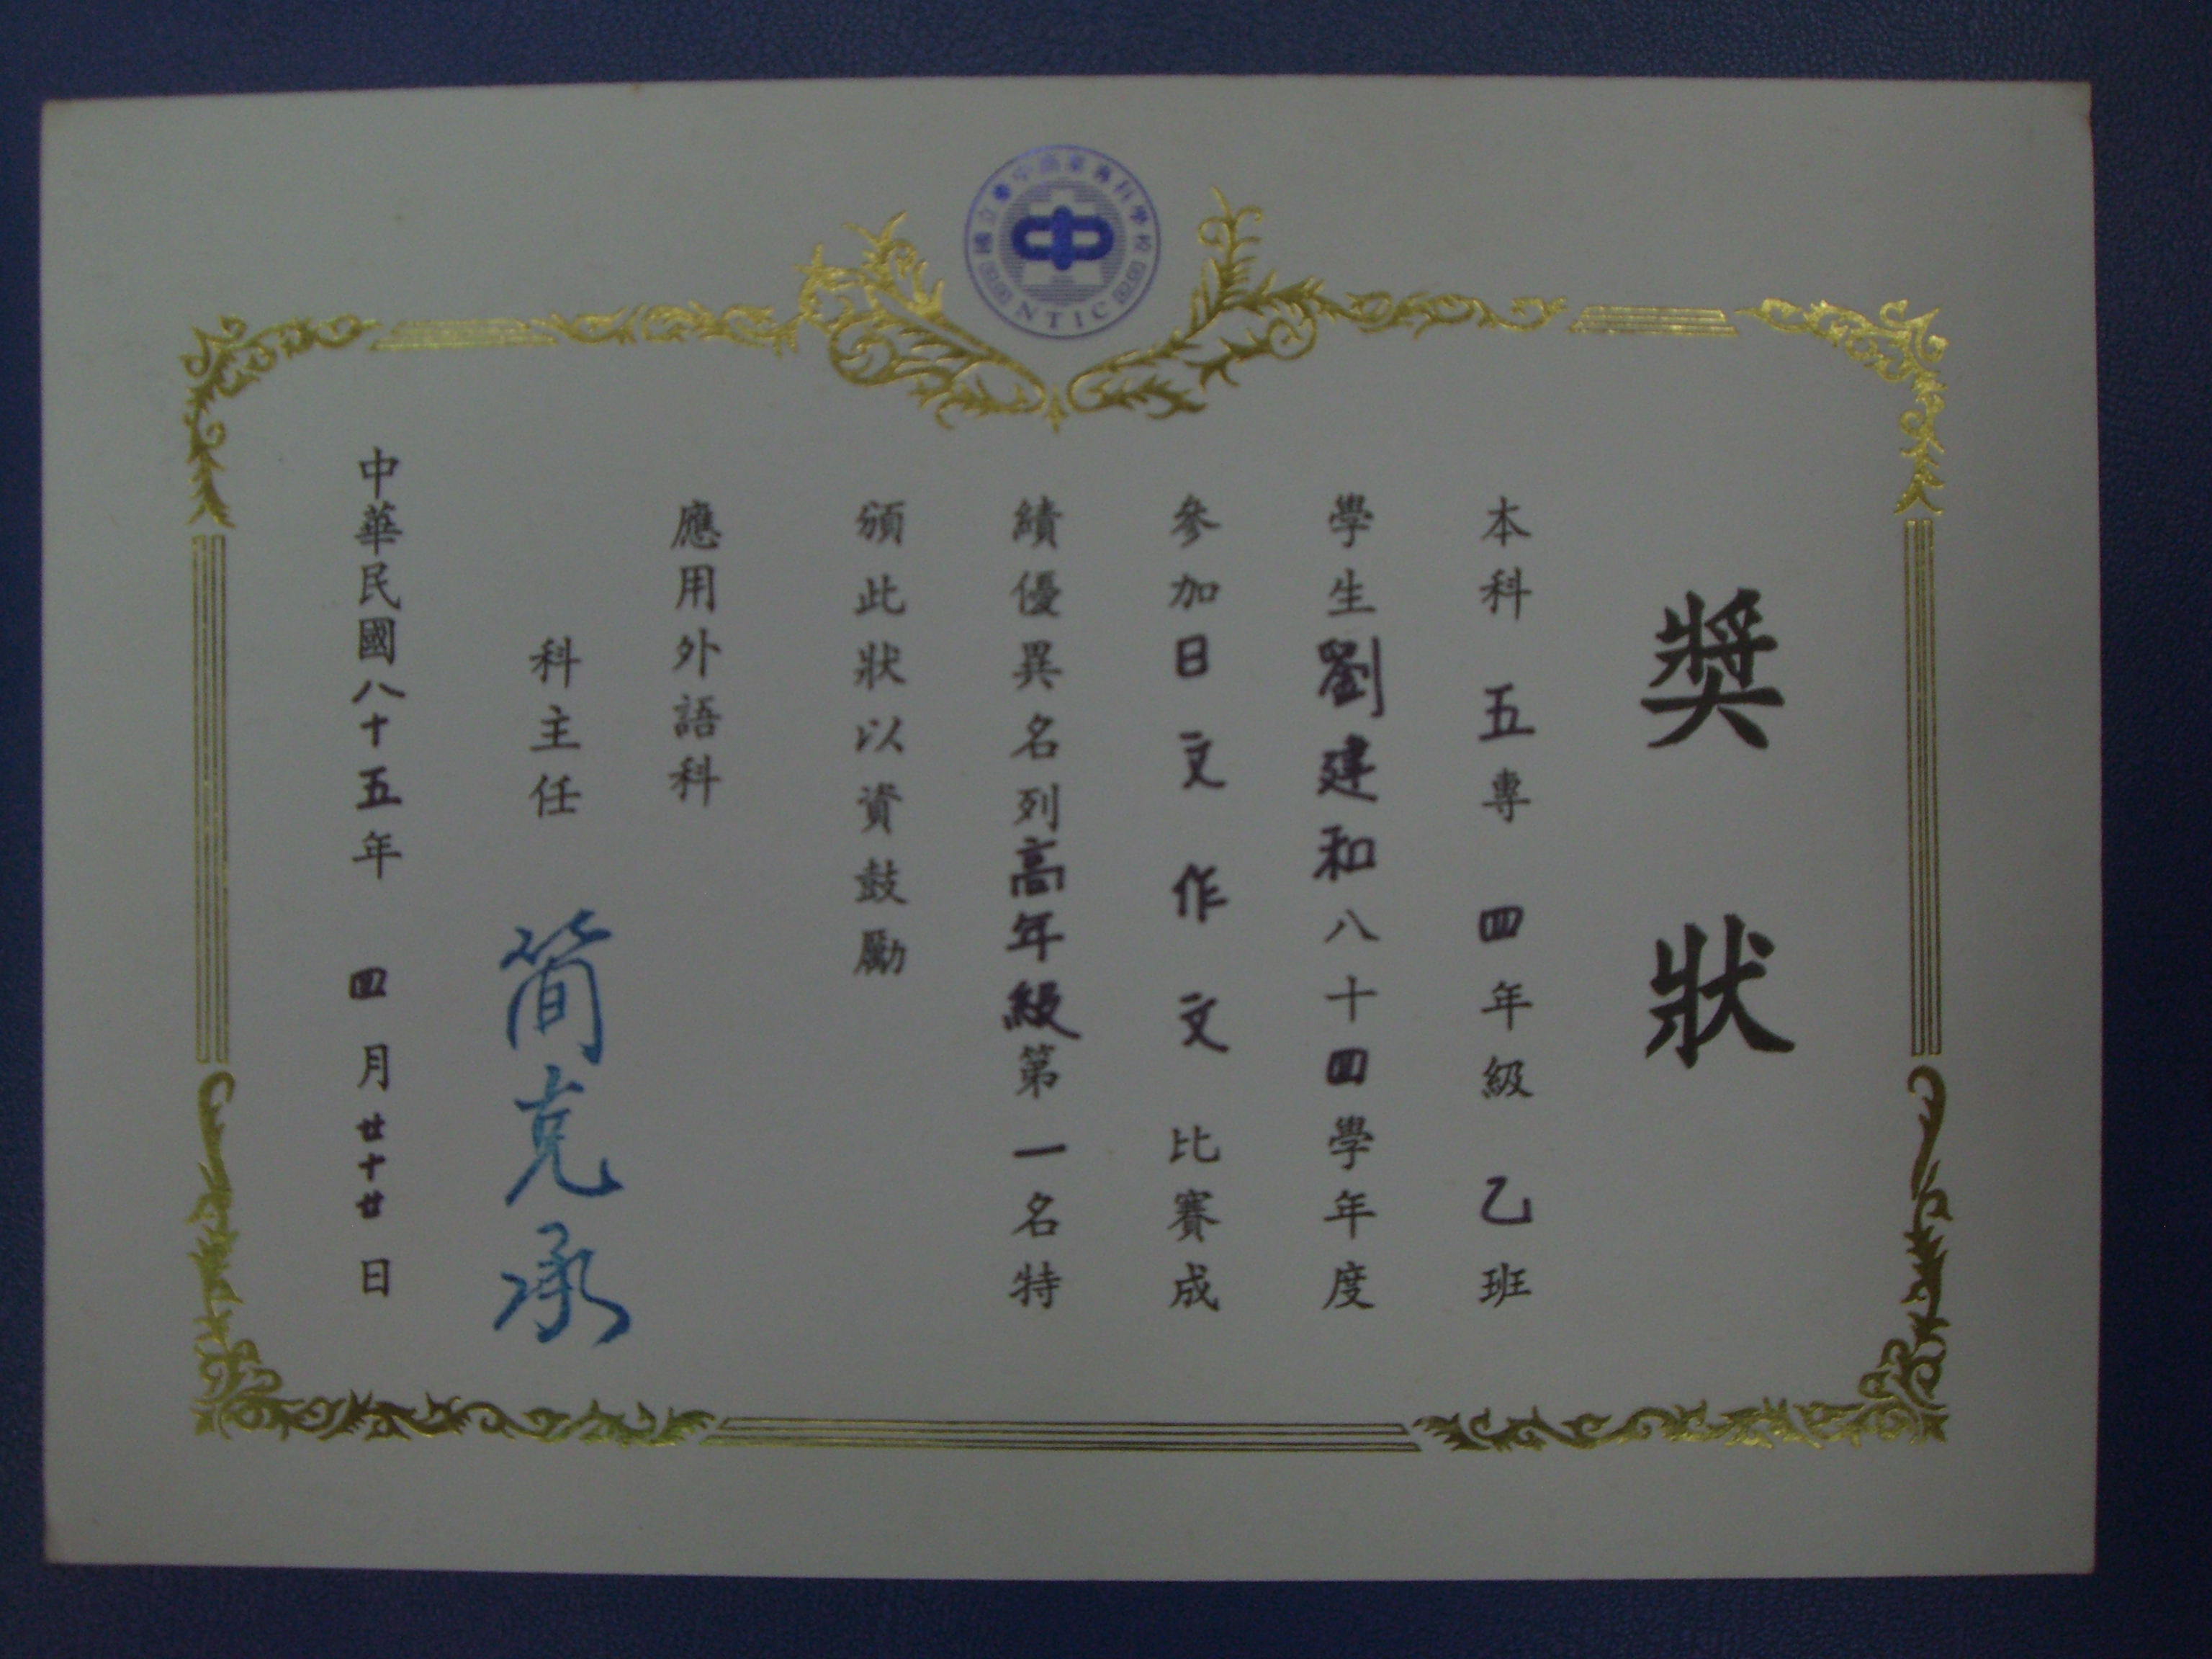 國立臺中商業專科學校
NTIC
獎狀
本科五專四年級乙班
學生劉建和八十四學年度
參加日文作文比賽成
績優異名列高年級第一名特
頒此狀以資鼓勵
應用外語科
科主任 簡克承
中華民國八十五年四月廿十廿日